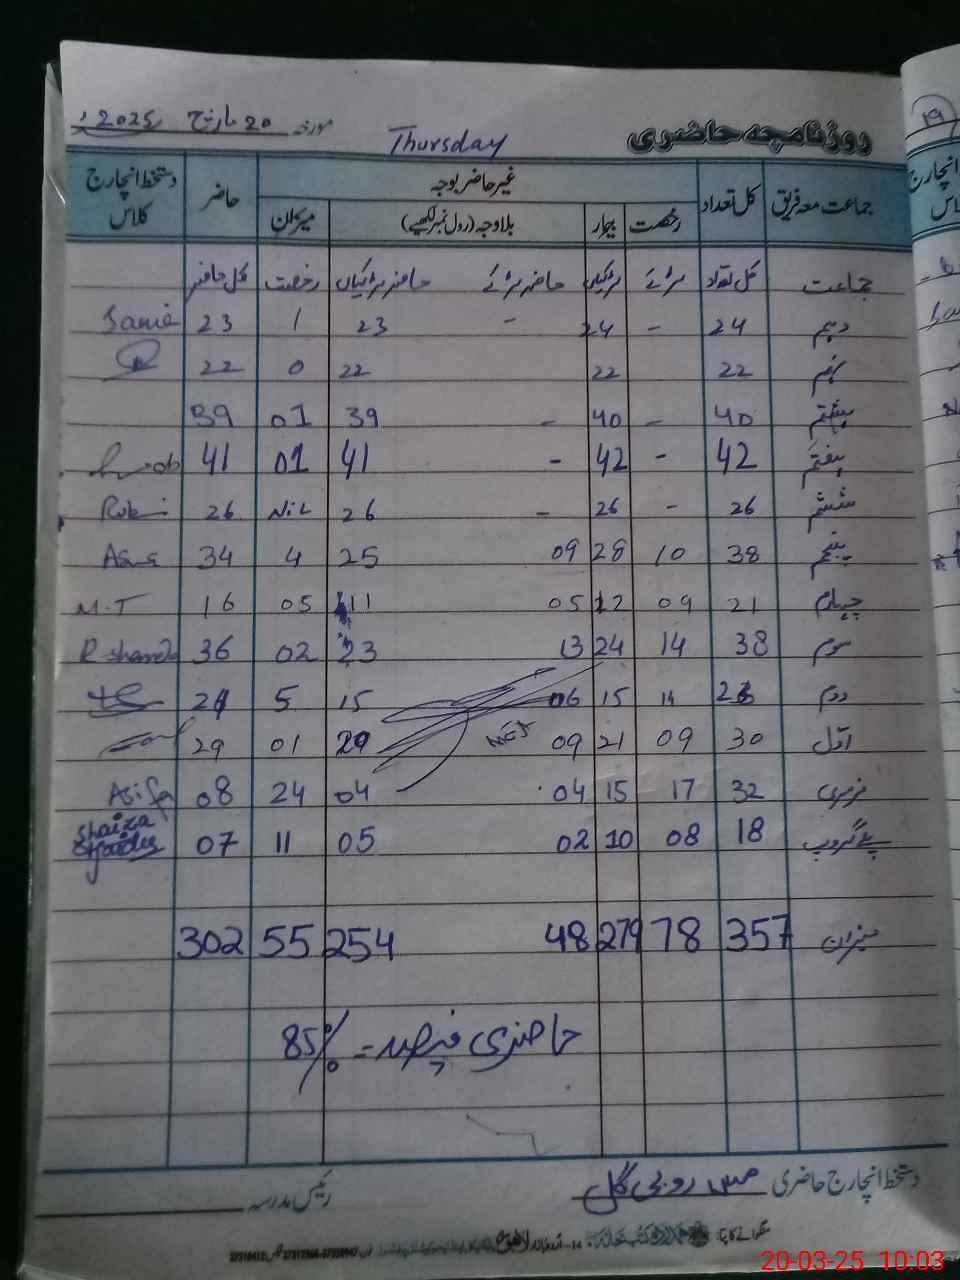 روزنامچہ حاضری Thursday مورخہ 20 مارچ 2025ء
جماعت معہ فریق کل تعداد غیر حاضر بوجہ حاضر دستخط انچارج کلاس
رخصت بیمار بلاوجہ (رول نمبر لکھیے) میزان
جماعت کل تعداد لڑکے لڑکیاں حاضر لڑکے حاضر لڑکیاں رخصت کل حاضر
دہم 24 - 24 - 23 1 23 Samia
نہم 22 22 22 0 22
ہشتم 40 - 40 - 39 01 39
ہفتم 42 - 42 - 41 01 41
ششم 26 - 26 - 26 Nil 26 Rubi
پنجم 38 10 28 09 25 4 34
چہارم 21 09 12 05 11 05 16 M.T
سوم 38 14 24 13 23 02 36
دوم 26 11 15 06 15 5 21
اول 30 09 21 09 20 01 29
نرسری 32 17 15 04 04 24 08 Asifa
پلے گروپ 18 08 10 02 05 11 07 Shaiza
میزان 357 78 279 48 254 55 302
حاضری فیصد = 85%
دستخط انچارج حاضری مس روبی گل رئیس مدرسہ
20-03-25 10:03